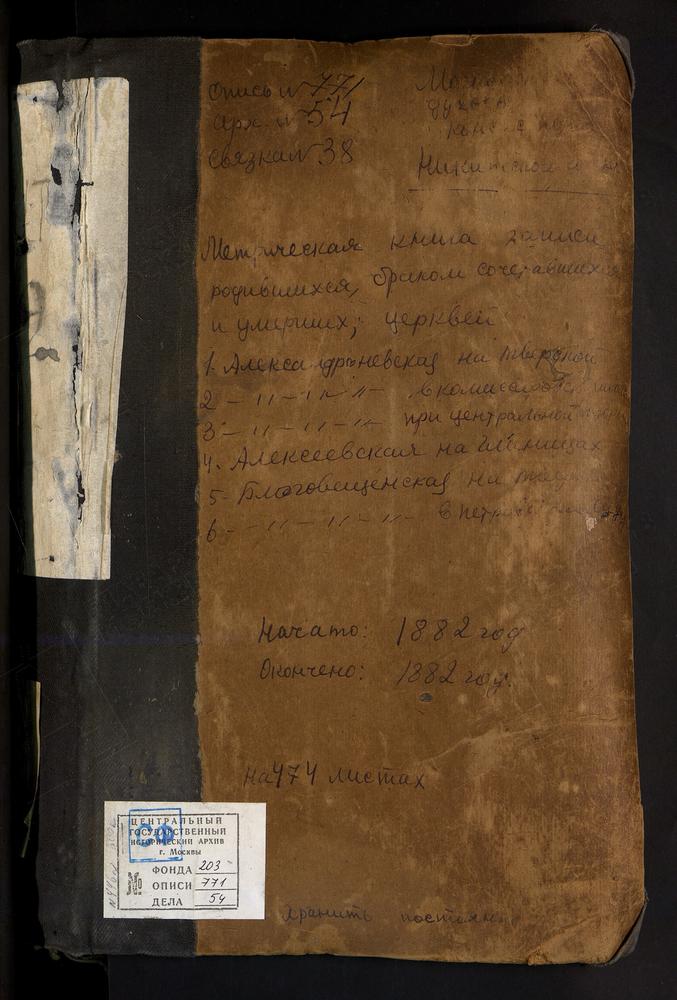 Опись № 771
Арх. № 54
Связка № 38
Никитской
Метрическая книга записи
родившихся, браком сочетавшихся
и умерших; церквей
1. Александроневская на Тверской
2 - " - " - " -
3 - " - " - " - при центральной
4. Алексеевская на Глинищах
5. Благовещенская на
6 - - " - " - " -
Начато: 1882 год
Окончено: 1882 год.
На 474 листах
СФ
ЦЕНТРАЛЬНЫЙ
ГОСУДАРСТВЕННЫЙ
ИСТОРИЧЕСКИЙ АРХИВ
г. Москвы
ФОНДА 203
ОПИСИ 771
ДЕЛА 54
Хранить